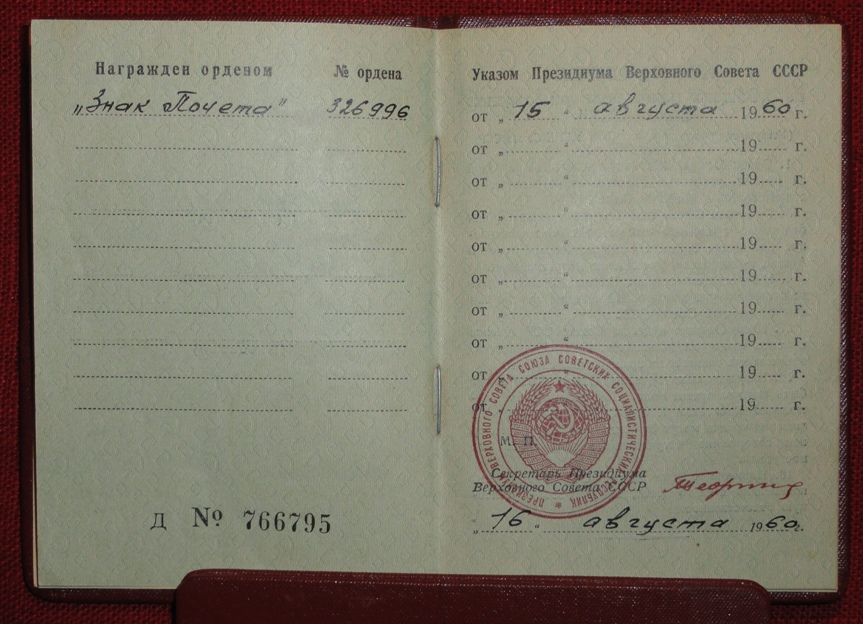 Награжден орденом № ордена
„Знак Почета" 326996
Д № 766795
Указом Президиума Верховного Совета СССР
от „15" августа 1960 г.
от „ " 19 г.
от „ " 19 г.
от „ " 19 г.
от „ " 19 г.
от „ " 19 г.
от „ " 19 г.
от „ " 19 г.
от „ " 19 г.
от „ " 19 г.
ПРЕЗИДИУМ ВЕРХОВНОГО СОВЕТА СОЮЗА СОВЕТСКИХ СОЦИАЛИСТИЧЕСКИХ РЕСПУБЛИК
М. П.
Секретарь Президиума
Верховного Совета СССР
„16" августа 1960г.